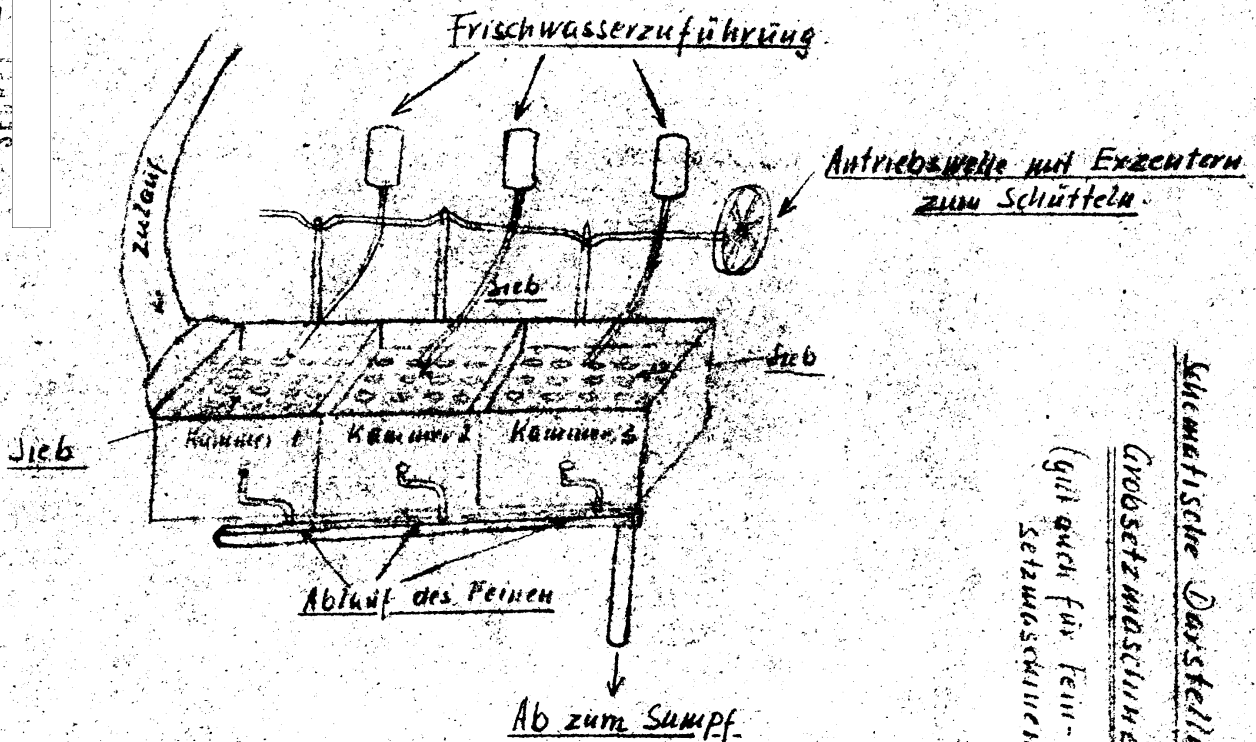 Frischwasserzuführung.
Antriebswelle mit Exzentern
zum Schütteln.
Zulauf
Sieb
Sieb
Sieb
Kammer 1
Kammer 2
Kammer 3
Ablauf des Feinen
Ab zum Sumpf
Schematische Darstellu
Grobsetzmaschine
(gilt auch für Fein-
setzmaschinen